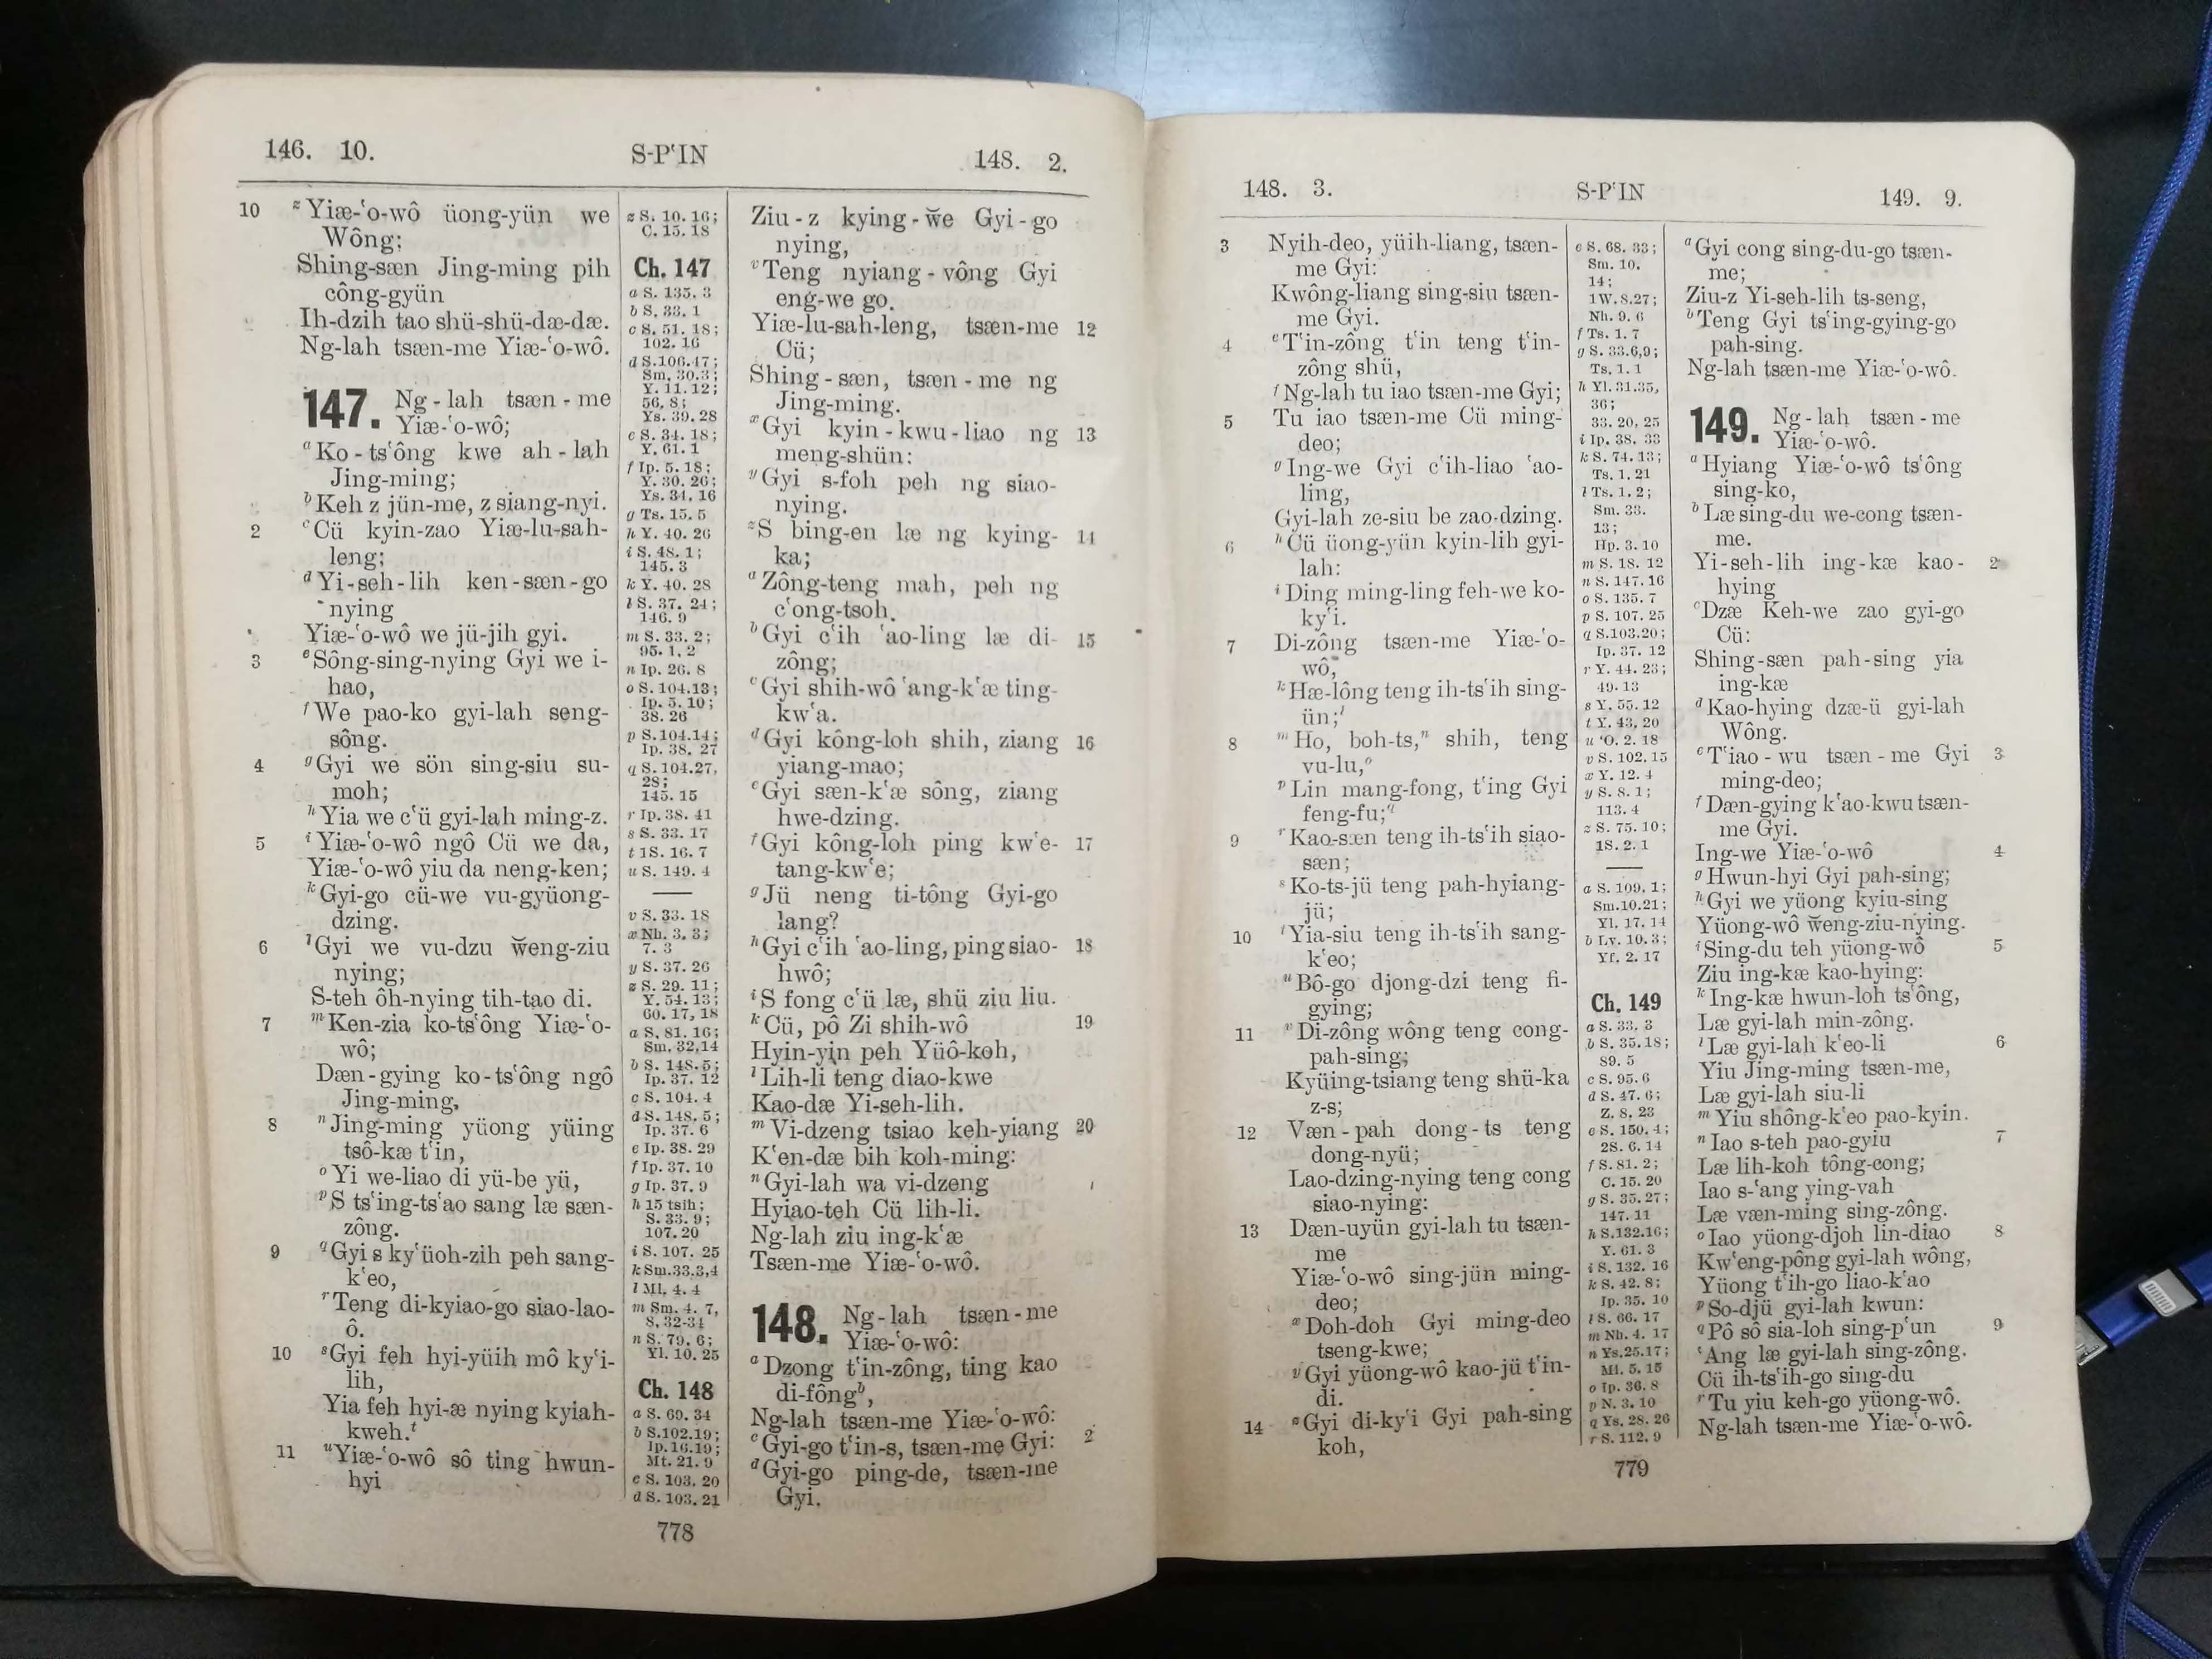 146. 10.
S-P‘IN
148. 2.
10 ᶻYiæ-‘o-wô üong-yün we
Wông;
Shing-sæn Jing-ming pih
công-gyün
Ih-dzih tao shü-shü-dæ-dæ.
Ng-lah tsæn-me Yiæ-‘o-wô.
147. Ng-lah tsæn-me
Yiæ-‘o-wô;
ᵃKo-ts‘ông kwe ah-lah
Jing-ming;
ᵇKeh z jün-me, z siang-nyi.
2 ᶜCü kyin-zao Yiæ-lu-sah-
leng;
ᵈYi-seh-lih ken-sæn-go
nying
Yiæ-‘o-wô we jü-jih gyi.
3 ᵉSông-sing-nying Gyi we i-
hao,
ᶠWe pao-ko gyi-lah seng-
sông.
4 ᵍGyi we sön sing-siu su-
moh;
ʰYia we c‘ü gyi-lah ming-z.
5 ⁱYiæ-‘o-wô ngô Cü we da,
Yiæ-‘o-wô yiu da neng-ken;
ᵏGyi-go cü-we vu-gyüong-
dzing.
6 ˡGyi we vu-dzu w̌eng-ziu
nying;
S-teh ôh-nying tih-tao di.
7 ᵐKen-zia ko-ts‘ông Yiæ-‘o-
wô;
Dæn-gying ko-ts‘ông ngô
Jing-ming,
8 ⁿJing-ming yüong yüing
tsô-kæ t‘in,
ᵒYi we-liao di yü-be yü,
ᵖS ts‘ing-ts‘ao sang læ sæn-
zông.
9 ᑫGyi s ky‘üoh-zih peh sang-
k‘eo,
ʳTeng di-kyiao-go siao-lao-
ô.
10 ˢGyi feh hyi-yüih mô ky‘i-
lih,
Yia feh hyi-æ nying kyiah-
kweh.ᵗ
11 ᵘYiæ-‘o-wô sô ting hwun-
hyi
z S. 10. 16;
C. 15. 18
Ch. 147
a S. 135. 3
b S. 33. 1
c S. 51. 18;
102. 16
d S.106.47;
Sm. 30.3;
Y. 11. 12;
56. 8;
Ys. 39. 28
e S. 34. 18;
Y. 61. 1
f Ip. 5. 18;
Y. 30. 26;
Ys. 34. 16
g Ts. 15. 5
h Y. 40. 26
i S. 48. 1;
145. 3
k Y. 40. 28
l S. 37. 24;
146. 9
m S. 33. 2;
95. 1, 2
n Ip. 26. 8
o S. 104.13;
Ip. 5. 10;
38. 26
p S.104.14;
Ip. 38. 27
q S.104.27,
28;
145. 15
r Ip. 38. 41
s S. 33. 17
t 1S. 16. 7
u S. 149. 4
v S. 33. 18
x Nh. 3. 3;
7. 3
y S. 37. 26
z S. 29. 11;
Y. 54. 13;
60. 17, 18
a S. 81. 16;
Sm. 32.14
b S. 148. 5;
Ip. 37. 12
c S. 104. 4
d S. 148. 5;
Ip. 37. 6
e Ip. 38. 29
f Ip. 37. 10
g Ip. 37. 9
h 15 tsih;
S. 33. 9;
107. 20
i S. 107. 25
k Sm.33.3,4
l Ml. 4. 4
m Sm. 4. 7,
8, 32-34
n S. 79. 6;
Yl. 10. 25
Ch. 148
a S. 69. 34
b S.102.19;
Ip.16.19;
Mt. 21. 9
c S. 103. 20
d S. 103. 21
Ziu-z kying-w̌e Gyi-go
nying,
ᵛTeng nyiang-vông Gyi
eng-we go.
Yiæ-lu-sah-leng, tsæn-me 12
Cü;
Shing-sæn, tsæn-me ng
Jing-ming.
ˣGyi kyin-kwu-liao ng 13
meng-shün:
ʸGyi s-foh peh ng siao-
nying.
ᶻS bing-en læ ng kying- 14
ka;
ᵃZông-teng mah, peh ng
c‘ong-tsoh.
ᵇGyi c‘ih ‘ao-ling læ di- 15
zông;
ᶜGyi shih-wô ‘ang-k‘æ ting-
kw‘a.
ᵈGyi kông-loh shih, ziang 16
yiang-mao;
ᵉGyi sæn-k‘æ sông, ziang
hwe-dzing.
ᶠGyi kông-loh ping kw‘e- 17
tang-kw‘e;
ᵍJü neng ti-tông Gyi-go
lang?
ʰGyi c‘ih ‘ao-ling, ping siao- 18
hwô;
ⁱS fong c‘ü læ, shü ziu liu.
ᵏCü, pô Zi shih-wô 19
Hyin-yin peh Yüô-koh,
ˡLih-li teng diao-kwe
Kao-dæ Yi-seh-lih.
ᵐVi-dzeng tsiao keh-yiang 20
K‘en-dæ bih koh-ming:
ⁿGyi-lah wa vi-dzeng
Hyiao-teh Cü lih-li.
Ng-lah ziu ing-k‘æ
Tsæn-me Yiæ-‘o-wô.
148. Ng-lah tsæn-me
Yiæ-‘o-wô:
ᵃDzong t‘in-zông, ting kao
di-fôngᵇ,
Ng-lah tsæn-me Yiæ-‘o-wô:
ᶜGyi-go t‘in-s, tsæn-me Gyi: 2
ᵈGyi-go ping-de, tsæn-me
Gyi.
778
148. 3.
S-P‘IN
149. 9.
3 Nyih-deo, yüih-liang, tsæn-
me Gyi:
Kwông-liang sing-siu tsæn-
me Gyi.
4 ᵉT‘in-zông t‘in teng t‘in-
zông shü,
ᶠNg-lah tu iao tsæn-me Gyi;
5 Tu iao tsæn-me Cü ming-
deo;
ᵍIng-we Gyi c‘ih-liao ‘ao-
ling,
Gyi-lah ze-siu be zao-dzing.
6 ʰCü üong-yün kyin-lih gyi-
lah:
ⁱDing ming-ling feh-we ko-
ky‘i.
7 Di-zông tsæn-me Yiæ-‘o-
wô,
ᵏHæ-lông teng ih-ts‘ih sing-
ün;ˡ
8 ᵐHo, boh-ts,ⁿ shih, teng
vu-lu,ᵒ
ᵖLin mang-fong, t‘ing Gyi
feng-fu;ᑫ
9 ʳKao-sæn teng ih-ts‘ih siao-
sæn;
ˢKo-ts-jü teng pah-hyiang-
jü;
10 ᵗYia-siu teng ih-ts‘ih sang-
k‘eo;
ᵘBô-go djong-dzi teng fi-
gying;
11 ᵛDi-zông wông teng cong-
pah-sing;
Kyüing-tsiang teng shü-ka
z-s;
12 Væn-pah dong-ts teng
dong-nyü;
Lao-dzing-nying teng cong
siao-nying:
13 Dæn-uyün gyi-lah tu tsæn-
me
Yiæ-‘o-wô sing-jün ming-
deo;
ˣDoh-doh Gyi ming-deo
tseng-kwe;
ʸGyi yüong-wô kao-jü t‘in-
di.
14 ᶻGyi di-ky‘i Gyi pah-sing
koh,
e S. 68. 33;
Sm. 10.
14;
1W.8.27;
Nh. 9. 6
f Ts. 1. 7
g S. 33.6,9;
Ts. 1. 1
h Yl. 31.35,
36;
33. 20, 25
i Ip. 38. 33
k S. 74. 13;
Ts. 1. 21
l Ts. 1. 2;
Sm. 33.
13;
Hp. 3. 10
m S. 18. 12
n S. 147. 16
o S. 135. 7
p S. 107. 25
q S.103.20;
Ip. 37. 12
r Y. 44. 23;
49. 13
s Y. 55. 12
t Y. 43. 20
u ‘O. 2. 18
v S. 102. 15
x Y. 12. 4
y S. 8. 1;
113. 4
z S. 75. 10;
1S. 2. 1
a S. 109. 1;
Sm.10.21;
Yl. 17. 14
b Lv. 10. 3;
Yf. 2. 17
Ch. 149
a S. 33. 3
b S. 35.18;
89. 5
c S. 95. 6
d S. 47. 6;
Z. 8. 23
e S. 150. 4;
2S. 6. 14
f S. 81. 2;
C. 15. 20
g S. 35. 27;
147. 11
h S.132.16;
Y. 61. 3
i S. 132. 16
k S. 42. 8;
Ip. 35. 10
l S. 66. 17
m Nh. 4. 17
n Ys.25.17;
Ml. 5. 15
o Ip. 36. 8
p N. 3. 10
q Ys. 28. 26
r S. 112. 9
ᵃGyi cong sing-du-go tsæn-
me;
Ziu-z Yi-seh-lih ts-seng,
ᵇTeng Gyi ts‘ing-gying-go
pah-sing.
Ng-lah tsæn-me Yiæ-‘o-wô.
149. Ng-lah tsæn-me
Yiæ-‘o-wô.
ᵃHyiang Yiæ-‘o-wô ts‘ông
sing-ko,
ᵇLæ sing-du we-cong tsæn-
me.
Yi-seh-lih ing-kæ kao- 2
hying
ᶜDzæ Keh-we zao gyi-go
Cü:
Shing-sæn pah-sing yia
ing-kæ
ᵈKao-hying dzæ-ü gyi-lah
Wông.
ᵉT‘iao-wu tsæn-me Gyi 3
ming-deo;
ᶠDæn-gying k‘ao-kwu tsæn-
me Gyi.
Ing-we Yiæ-‘o-wô 4
ᵍHwun-hyi Gyi pah-sing;
ʰGyi we yüong kyiu-sing
Yüong-wô w̌eng-ziu-nying.
ⁱSing-du teh yüong-wô 5
Ziu ing-kæ kao-hying:
ᵏIng-kæ hwun-loh ts‘ông,
Læ gyi-lah min-zông.
ˡLæ gyi-lah k‘eo-li 6
Yiu Jing-ming tsæn-me,
Læ gyi-lah siu-li
ᵐYiu shông-k‘eo pao-kyin.
ⁿIao s-teh pao-gyiu 7
Læ lih-koh tông-cong;
Iao s-‘ang ying-vah
Læ væn-ming sing-zông.
ᵒIao yüong-djoh lin-diao 8
Kw‘eng-pông gyi-lah wông,
Yüong t‘ih-go liao-k‘ao
ᵖSo-djü gyi-lah kwun:
ᑫPô sô sia-loh sing-p‘un 9
‘Ang læ gyi-lah sing-zông.
Cü ih-ts‘ih-go sing-du
ʳTu yiu keh-go yüong-wô.
Ng-lah tsæn-me Yiæ-‘o-wô.
779